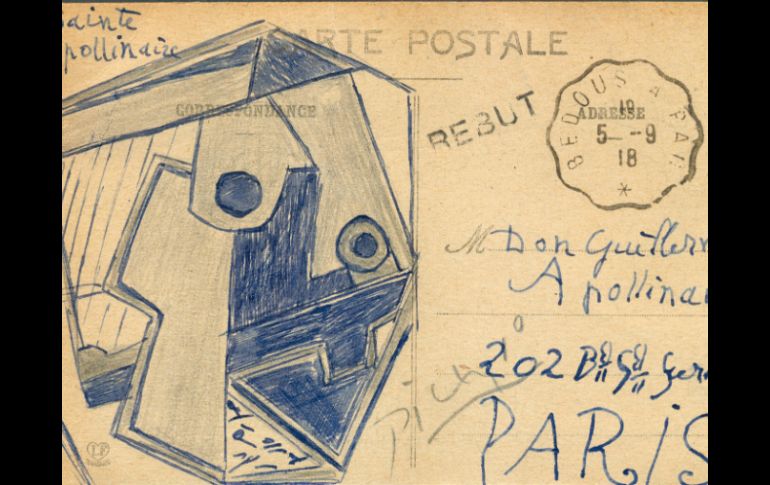 ainte
pollinaire
CARTE POSTALE
CORRESPONDANCE
ADRESSE
REBUT
BEDOUS A PAR
19
5 -9
18
*
M Don Guillerm
Apollinai
202 Bd St Ger
PARIS